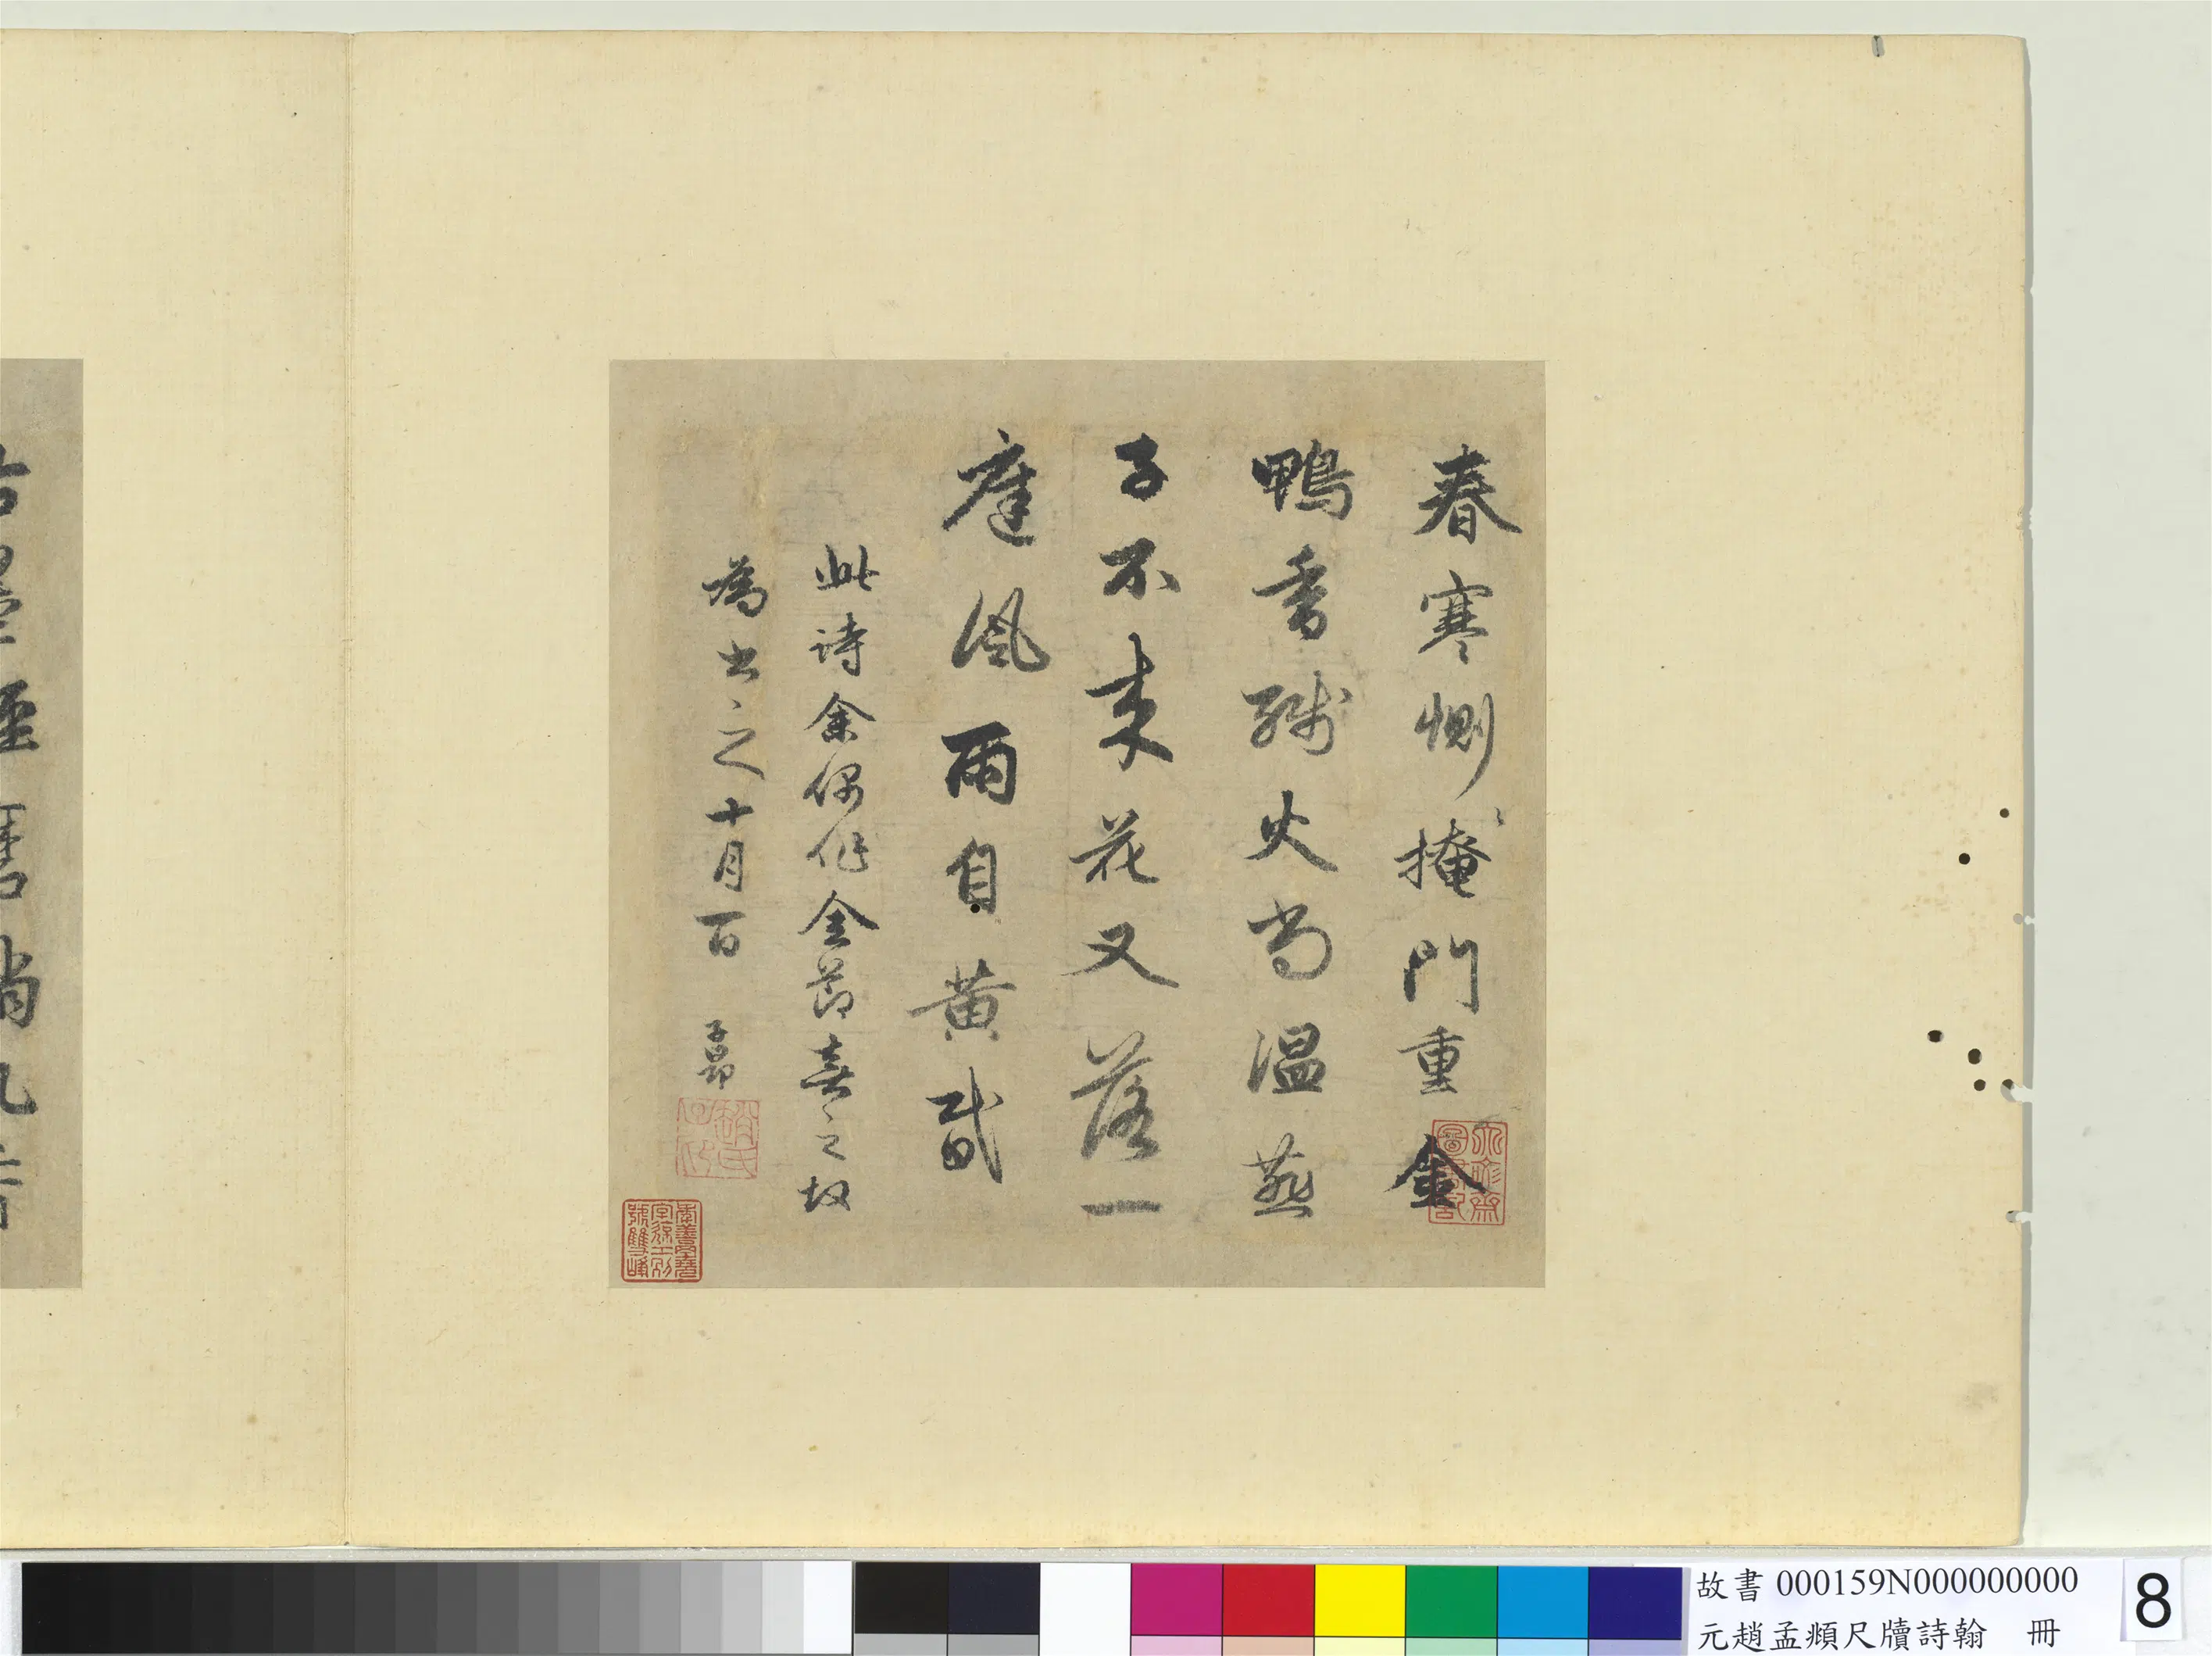 春寒惻〻掩門重金
鴨香殘火尚温燕
子不来花又落一
庭風雨自黄昏
此詩余偶作金節喜之故
為書之十月一日 子昂
趙氏子昂
故書 000159N000000000
元趙孟頫尺牘詩翰 冊
8